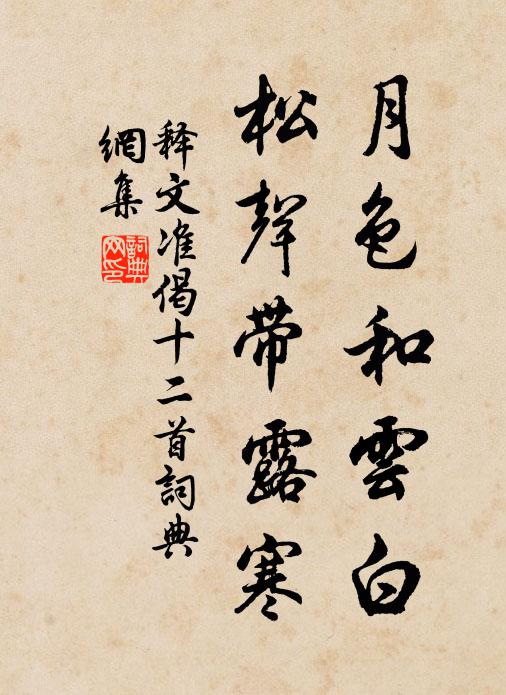 月色和雲白
松聲帶露寒
释文准偈十二首詞典
網集
詞典
网印